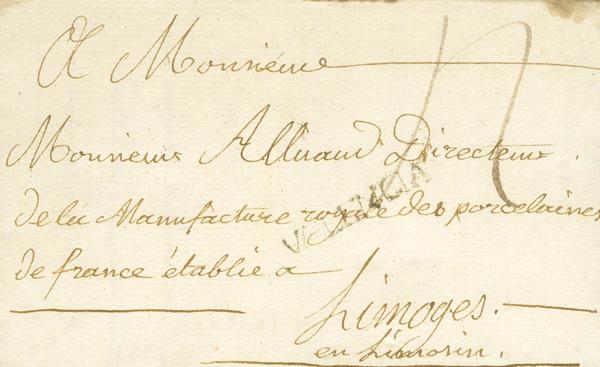 A Monsieur
Monsieur Alluaud Directeur
de la Manufacture royale des porcelaines
VALENCIA
de france établie a
Limoges.
en Limosin.